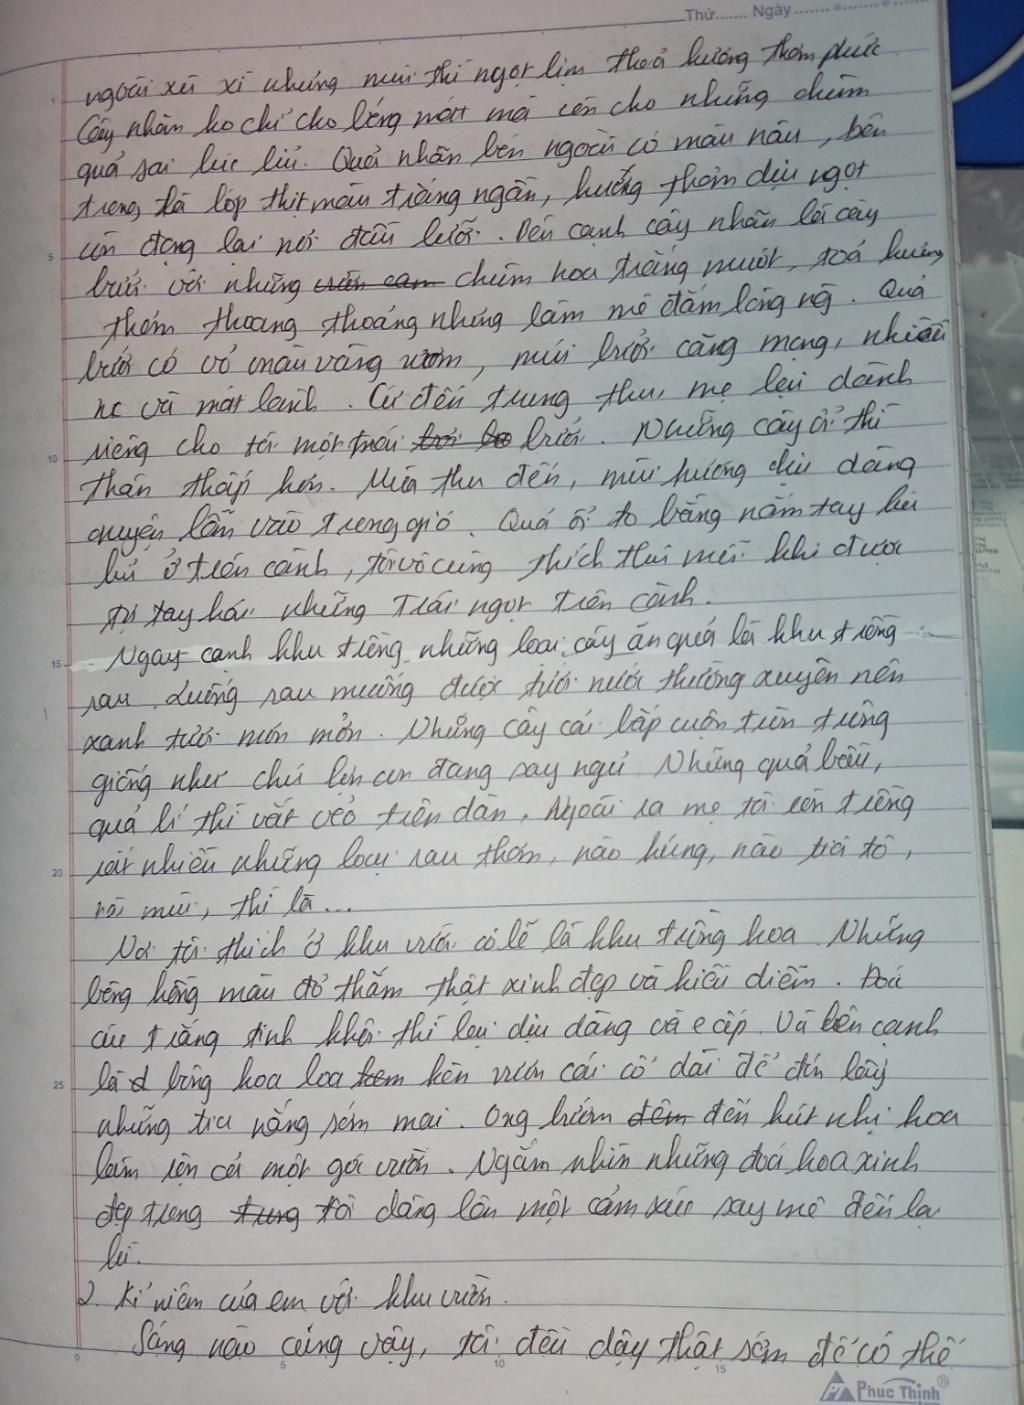 Thứ....... Ngày.......
ngoài xù xì nhưng mùi thì ngọt lịm thoả hương thơm phức
Cây nhãn ko chỉ cho bóng mát mà còn cho những chùm
quả sai lúc lỉu. Quả nhãn bên ngoài có màu nâu, bên
trong là lớp thịt màu trắng ngần, hương thơm dịu ngọt
còn đọng lại nơi đầu lưỡi. Bên cạnh cây nhãn là cây
bưởi với những vườn cam chùm hoa trắng muốt, toả hương
thơm thoang thoảng nhưng làm mê đắm lòng ng. Quả
bưởi có vỏ màu vàng ươm, múi bưởi căng mọng, nhiều
nc và mát lành. Cứ đến trung thu, mẹ lại dành
riêng cho tôi một trái bưởi. Những cây ổi thì
thân thấp hơn. Mùa thu đến, mùi hương dịu dàng
quyện lẫn vào trong gió. Quả ổi to bằng nắm tay lúc
lỉu ở trên cành, tôi vô cùng thích thú mỗi khi được
tự tay hái những trái ngọt trên cành.
Ngay cạnh khu trồng những loại cây ăn quả là khu trồng
rau. Luống rau muống được tưới nước thường xuyên nên
xanh tươi mơn mởn. Những cây cải bắp cuộn tròn trông
giống như chú lợn con đang say ngủ. Những quả bầu,
quả bí thì vắt vẻo trên dàn. Ngoài ra mẹ tôi còn trồng
rất nhiều những loại rau thơm, nào húng, nào tía tô,
rồi mùi, thì là...
Nơi tôi thích ở khu vườn có lẽ là khu trồng hoa. Những
bông hồng màu đỏ thắm thật xinh đẹp và kiều diễm. Đoá
cúc trắng tinh khôi thì lại dịu dàng và e ấp. Và bên cạnh
là bông hoa loa kèn vươn cái cổ dài để đón lấy
những tia nắng sớm mai. Ong bướm đến hút nhị hoa
làm rộn cả một góc vườn. Ngắm nhìn những đoá hoa xinh
đẹp trong tôi dâng lên một cảm xúc say mê đến lạ
kì.
2. Kỉ niệm của em với khu vườn.
Sáng nào cũng vậy, tôi đều dậy thật sớm để có thể
5 10 15 20 25
0 5 10 15
Phuc Thinh®